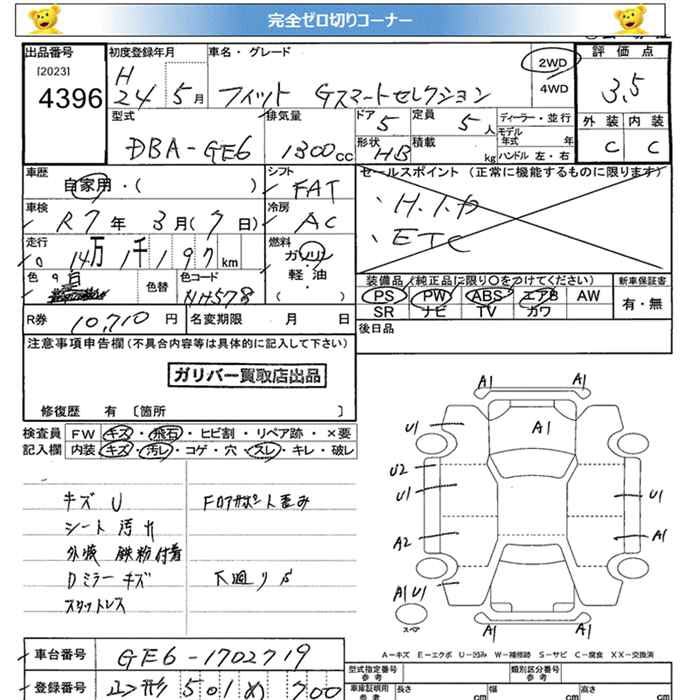 完全ゼロ切りコーナー
出品番号 [2023] 4396
初度登録年月 H 24 5月
車名・グレード フィット Gスマートセレクション
2WD
4WD
評価点 3,5
外装 内装
C C
型式 DBA-GE6
排気量 1300cc
ドア 5
定員 5人
形状 HB
積載 kg
ディーラー・並行
モデル年式 年
ハンドル 左・右
車歴 自家用・( )
シフト FAT
セールスポイント (正常に機能するものに限ります)
・H.I.D
・ETC
車検 R7年 3月(7日)
冷房 AC
走行 14万1千197km
燃料 ガソリン
軽・油
( )
色
色替
色コード NH578
装備品(純正品に限り○をつけてください)
PS PW ABS エアB AW
SR ナビ TV カワ
新車保証書
有・無
R券 10,710円
名変期限 月 日
後日品
注意事項申告欄(不具合内容等は具体的に記入して下さい)
ガリバー買取店出品
修復歴 有 〔箇所 〕
検査員 FW キズ・飛石・ヒビ割・リペア跡・×要
記入欄 内装 キズ・汚レ・コゲ・穴・スレ・キレ・破レ
キズ U
シート汚れ
外装 鉄粉付着
Dミラーキズ
スタットレス
Fロアサポート歪み
下廻りS
A1 A1
U1 A1
U2
U1 U1
A2 A1
A1 U1
スペア
A1 A1
A-キズ E-エクボ U-凹み W-補修跡 S-サビ C-腐食 XX-交換済
車台番号 GE6-1702719
登録番号 501 め 700
型式指定番号 参考
類別区分番号 参考
車庫証明用 参考 長さ cm 幅 cm 高さ cm